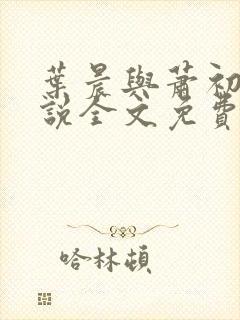 葉晨與蕭初
說全文免費
哈林頓